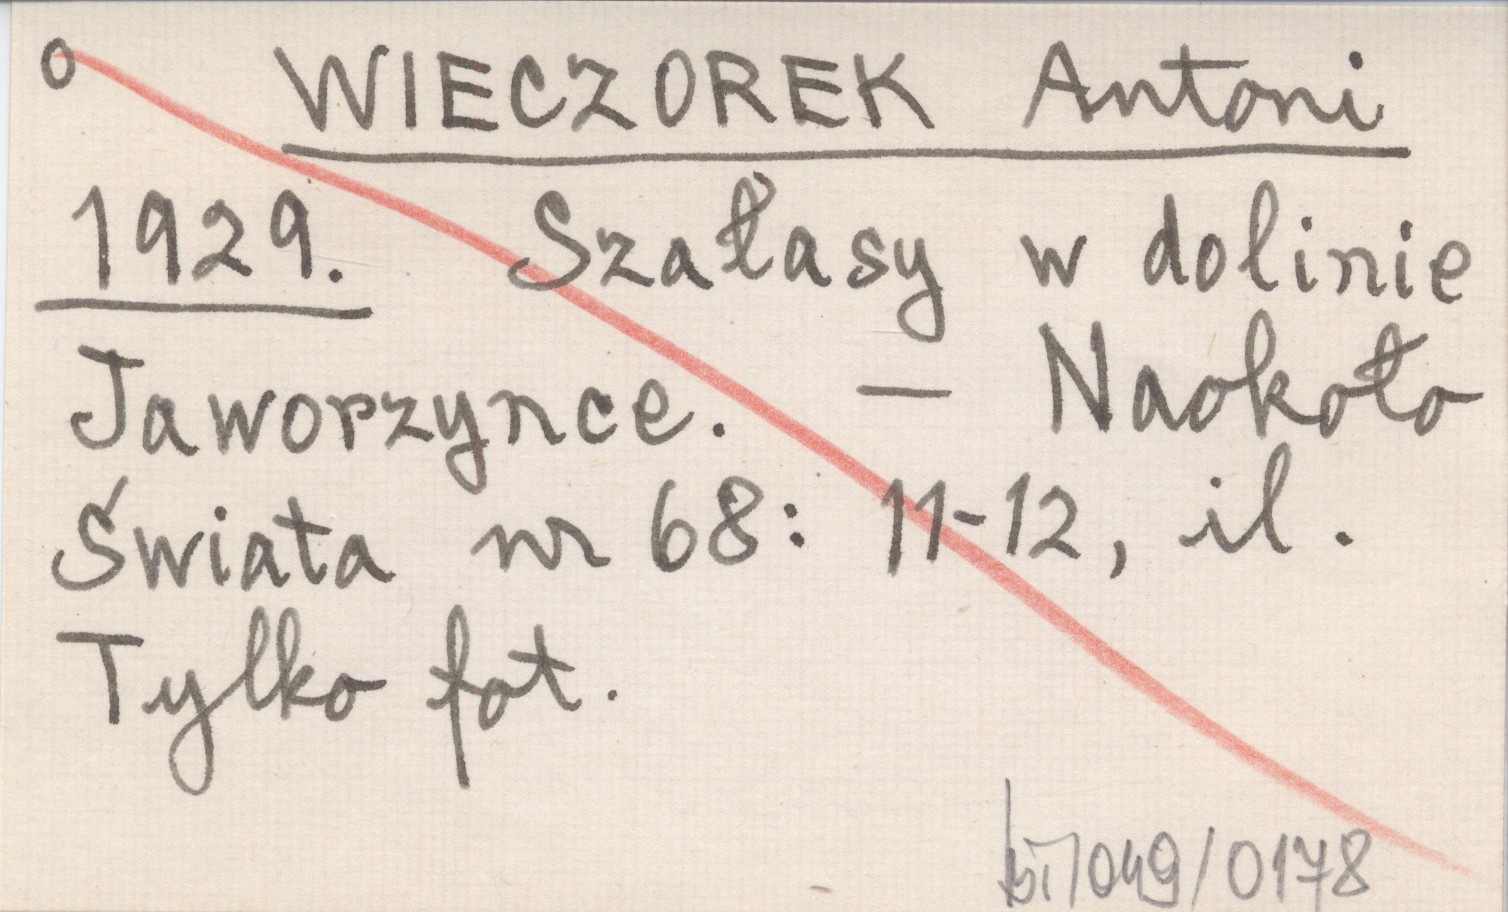 o WIECZOREK Antoni
1929. Szałasy w dolinie
Jaworzynce. — Naokoło
Świata nr 68: 11-12, il.
Tylko fot.
049/0178